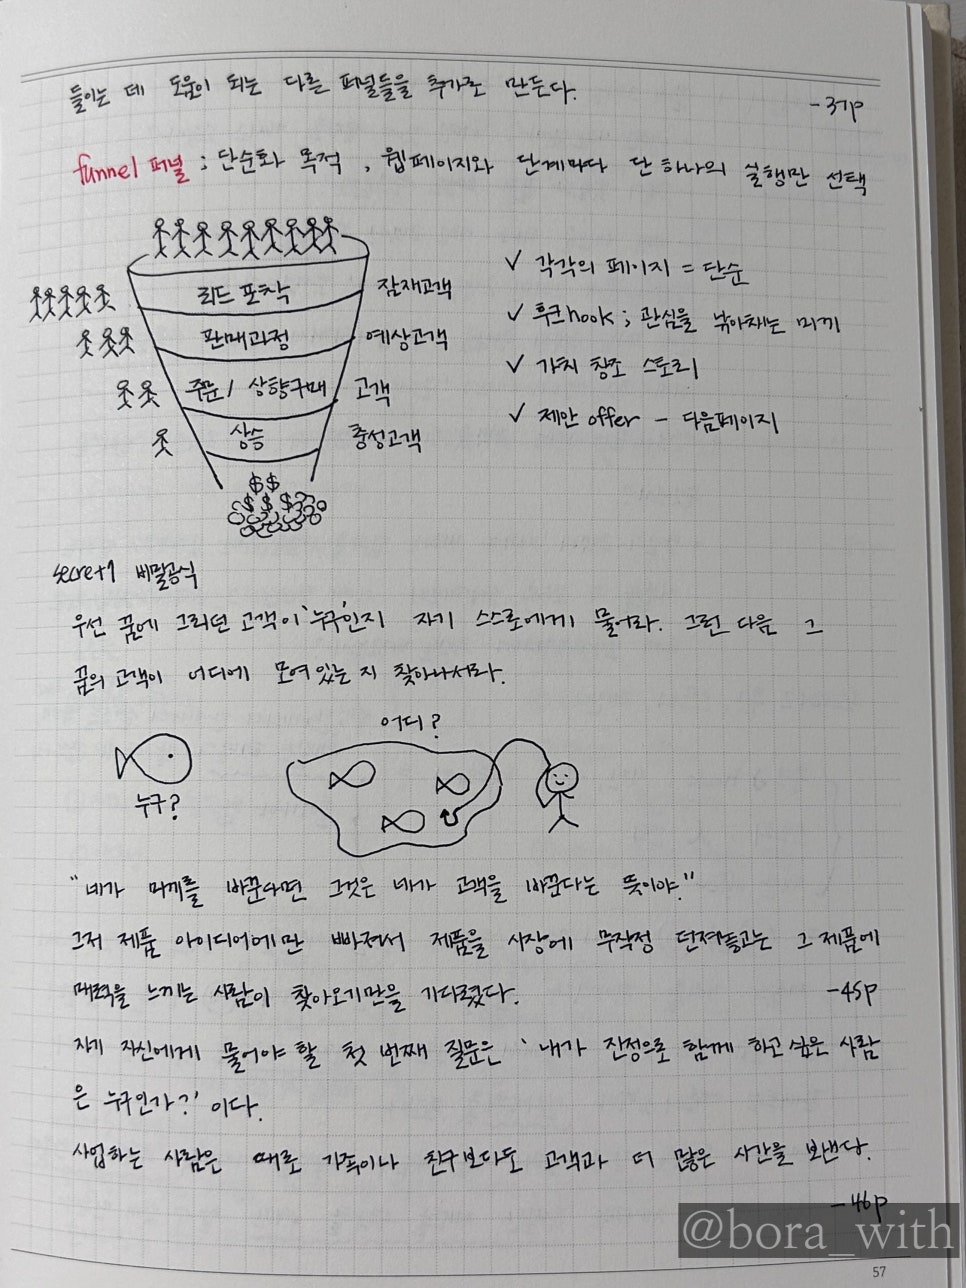 들이는 데 도움이 되는 다른 퍼널들을 추가로 만든다.
-37p
funnel 퍼널 ; 단순화 목적 , 웹페이지와 단계마다 단 하나의 실행만 선택
리드 포착 잠재고객
판매과정 예상고객
주문/ 상향구매 고객
상승 충성고객
$$
$ $ $
✓ 각각의 페이지 = 단순
✓ 후크hook ; 관심을 낚아채는 미끼
✓ 가치 창조 스토리
✓ 제안 offer - 다음페이지
secret1 비밀공식
우선 꿈에 그리던 고객이 '누구'인지 자기 스스로에게 물어라. 그런 다음 그
꿈의 고객이 어디에 모여있는 지 찾아나서라.
누구?
어디?
"네가 미끼를 바꾼다면 그것은 네가 고객을 바꾼다는 뜻이야"
그저 제품 아이디어에만 빠져서 제품을 시장에 무작정 던져놓고는 그 제품에
매력을 느끼는 사람이 찾아오기만을 기다렸다. -45p
자기 자신에게 물어야 할 첫 번째 질문은 '내가 진정으로 함께 하고 싶은 사람
은 누구인가?' 이다.
사업하는 사람은 때로 가족이나 친구보다도 고객과 더 많은 시간을 보낸다.
-46p
@bora_with
57